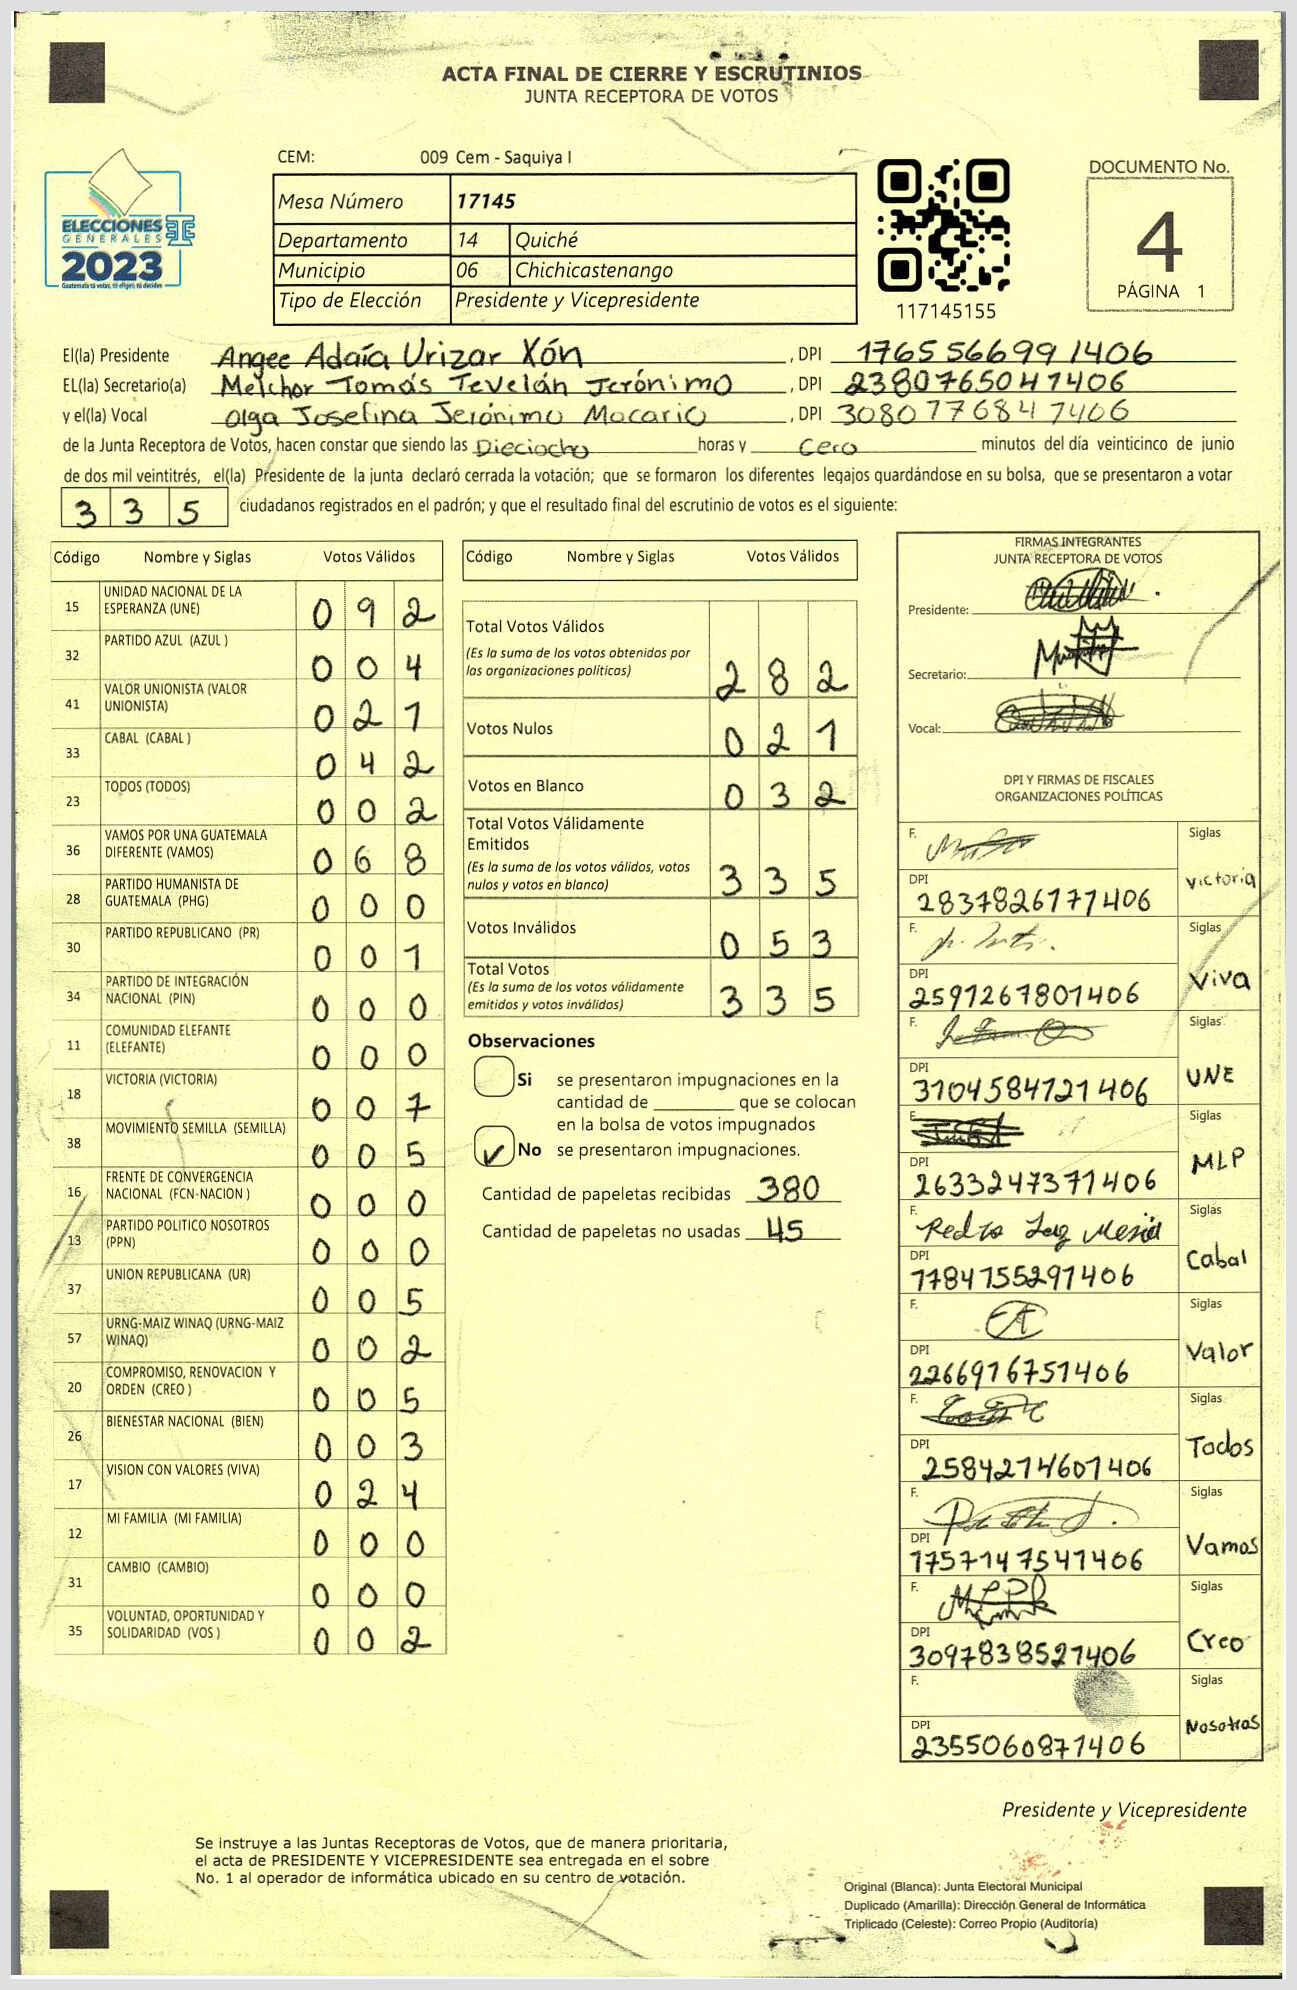 ACTA FINAL DE CIERRE Y ESCRUTINIOS
JUNTA RECEPTORA DE VOTOS
CEM: 009 Cem - Saquiya I
Mesa Número 17145
Departamento 14 Quiché
Municipio 06 Chichicastenango
Tipo de Elección Presidente y Vicepresidente
ELECCIONES
GENERALES
2023
Guatemala tú votas, tú eliges, tú decides
117145155
DOCUMENTO No.
4
PÁGINA 1
El(la) Presidente Angee Adaía Urizar Xón , DPI 1765566991406
EL(la) Secretario(a) Melchor Tomás Tevelán Jerónimo , DPI 2380765041406
y el(la) Vocal Olga Josefina Jerónimo Macario , DPI 3080776841406
de la Junta Receptora de Votos, hacen constar que siendo las Dieciocho horas y Cero minutos del día veinticinco de junio
de dos mil veintitrés, el(la) Presidente de la junta declaró cerrada la votación; que se formaron los diferentes legajos guardándose en su bolsa, que se presentaron a votar
335 ciudadanos registrados en el padrón; y que el resultado final del escrutinio de votos es el siguiente:
Código Nombre y Siglas Votos Válidos
15 UNIDAD NACIONAL DE LA
ESPERANZA (UNE) 092
32 PARTIDO AZUL (AZUL ) 004
41 VALOR UNIONISTA (VALOR
UNIONISTA) 021
33 CABAL (CABAL ) 042
23 TODOS (TODOS) 002
36 VAMOS POR UNA GUATEMALA
DIFERENTE (VAMOS) 068
28 PARTIDO HUMANISTA DE
GUATEMALA (PHG) 000
30 PARTIDO REPUBLICANO (PR) 001
34 PARTIDO DE INTEGRACIÓN
NACIONAL (PIN) 000
11 COMUNIDAD ELEFANTE
(ELEFANTE) 000
18 VICTORIA (VICTORIA) 007
38 MOVIMIENTO SEMILLA (SEMILLA) 005
16 FRENTE DE CONVERGENCIA
NACIONAL (FCN-NACION ) 000
13 PARTIDO POLITICO NOSOTROS
(PPN) 000
37 UNION REPUBLICANA (UR) 005
57 URNG-MAIZ WINAQ (URNG-MAIZ
WINAQ) 002
20 COMPROMISO, RENOVACION Y
ORDEN (CREO ) 005
26 BIENESTAR NACIONAL (BIEN) 003
17 VISION CON VALORES (VIVA) 024
12 MI FAMILIA (MI FAMILIA) 000
31 CAMBIO (CAMBIO) 000
35 VOLUNTAD, OPORTUNIDAD Y
SOLIDARIDAD (VOS ) 002
Código Nombre y Siglas Votos Válidos
Total Votos Válidos
(Es la suma de los votos obtenidos por
las organizaciones políticas) 282
Votos Nulos 021
Votos en Blanco 032
Total Votos Válidamente
Emitidos
(Es la suma de los votos válidos, votos
nulos y votos en blanco) 335
Votos Inválidos 053
Total Votos
(Es la suma de los votos válidamente
emitidos y votos inválidos) 335
Observaciones
Si se presentaron impugnaciones en la
cantidad de ________ que se colocan
en la bolsa de votos impugnados
No se presentaron impugnaciones.
Cantidad de papeletas recibidas 380
Cantidad de papeletas no usadas 45
FIRMAS INTEGRANTES
JUNTA RECEPTORA DE VOTOS
Presidente:
Secretario:
Vocal:
DPI Y FIRMAS DE FISCALES
ORGANIZACIONES POLÍTICAS
F. Siglas
DPI victoria
2837826771406
F. Siglas
DPI Viva
2591267801406
F. Siglas
DPI UNE
3104584721406
F. Siglas
DPI MLP
2633247371406
F. Siglas
DPI Cabal
1784155291406
F. Siglas
DPI Valor
2266916751406
F. Siglas
DPI Todos
2584214601406
F. Siglas
DPI Vamos
1757147541406
F. Siglas
DPI Creo
3097838521406
F. Siglas
DPI Nosotros
2355060871406
Presidente y Vicepresidente
Se instruye a las Juntas Receptoras de Votos, que de manera prioritaria,
el acta de PRESIDENTE Y VICEPRESIDENTE sea entregada en el sobre
No. 1 al operador de informática ubicado en su centro de votación.
Original (Blanca): Junta Electoral Municipal
Duplicado (Amarilla): Dirección General de Informática
Triplicado (Celeste): Correo Propio (Auditoría)